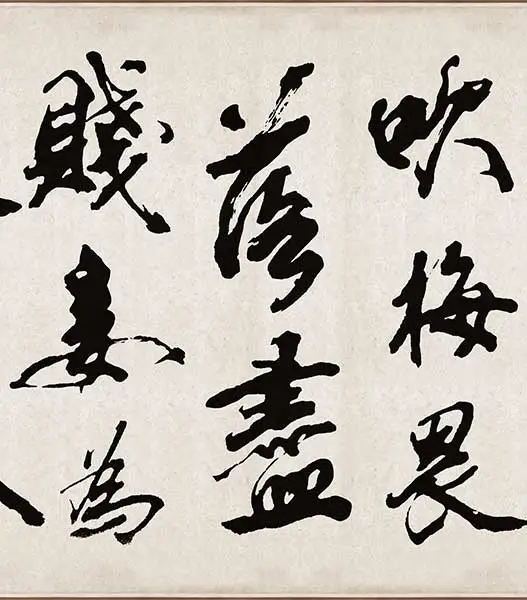 吹梅畏
落盡
賤妾為